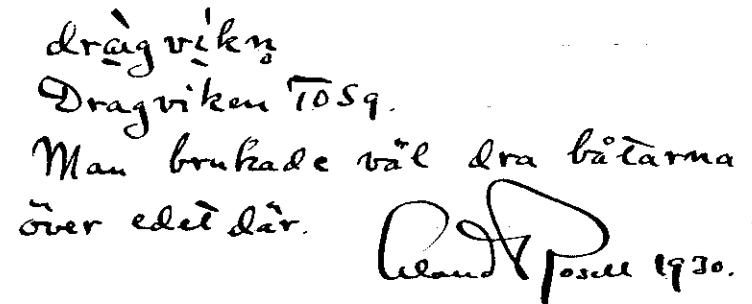 dràgvìkn̥
Dragviken TOSq.
Man brukade väl dra båtarna
över edet där. Rosell 1930.